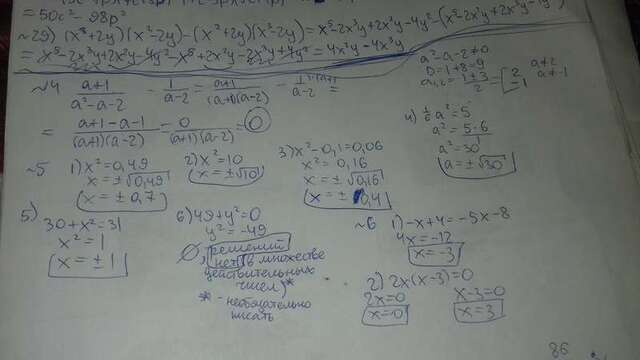 = 50c² - 98p²
~29) (x³+2y)(x²-2y)-(x²+2y)(x³-2y)=x⁵-2x³y+2x²y-4y²-(x⁵-2x²y+2x³y-4y²)
= x⁵-2x³y+2x²y-4y²-x⁵+2x²y-2x³y+4y²=4x²y-4x³y
~4 a+1/a²-a-2 - 1/a-2 = a+1/(a+1)(a-2) - 1/a-2 =
= a+1-a-1/(a+1)(a-2) = 0/(a+1)(a-2) = 0
a²-a-2≠0
D=1+8=9
a₁,₂= 1±3/2 = [2 -1
a≠2
a≠-1
4) 1/6 a²=5
a²=5·6
a²=30
a=±√30
~5 1) x²=0,49
x=±√0,49
x=±0,7
2) x²=10
x=±√10
3) x²-0,1=0,06
x²=0,16
x=±√0,16
x=±0,4
5) 30+x²=31
x²=1
x=±1
6) 49+y²=0
y²=-49
∅, решений
нет (в множестве
действительных
чисел)*
* - необязательно
писать
~6 1) -x+4=-5x-8
4x=-12
x=-3
2) 2x(x-3)=0
2x=0 x-3=0
x=0 x=3
86